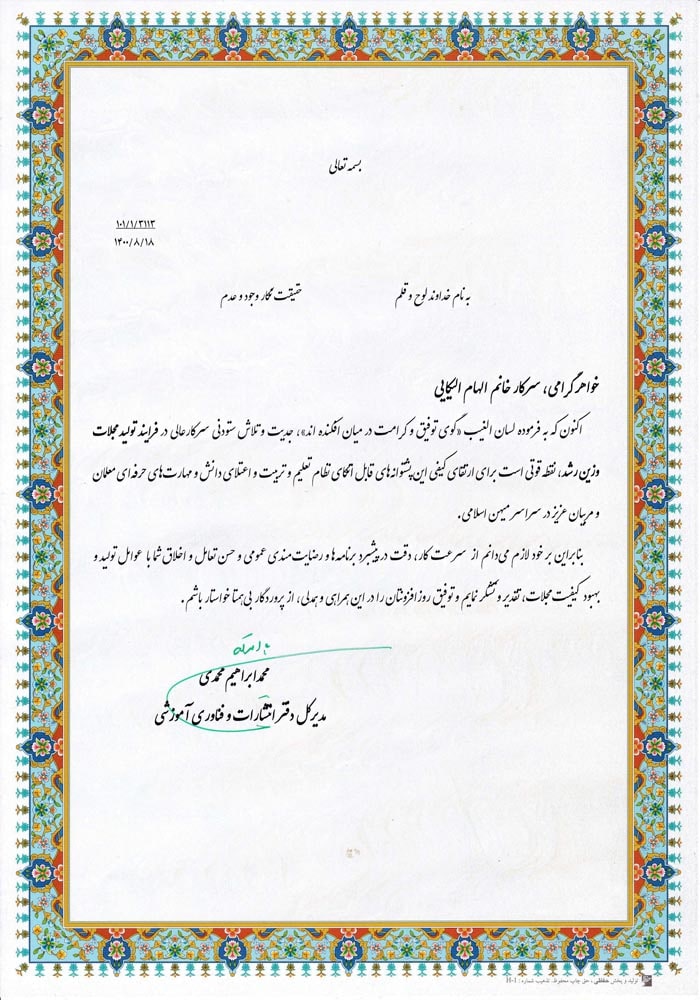 بسمه تعالی
۱۰۱/۱/۳۱۱۳
۱۴۰۰/۸/۱۸
به نام خداوند لوح و قلم حقیقت نگار وجود و عدم
خواهر گرامی، سرکار خانم الهام الیکایی
اکنون که به فرموده لسان الغیب «گوی توفیق و کرامت در میان افکنده اند»، جدیت و تلاش ستودنی سرکارعالی در فرایند تولید مجلات
وزین رشد، نقطه قوتی است برای ارتقای کیفی این پشتوانه‌های قابل اتکای نظام تعلیم و تربیت و اعتلای دانش و مهارت‌های حرفه‌ای معلمان
و مربیان عزیز در سراسر میهن اسلامی.
بنابراین بر خود لازم می‌دانم از سرعت کار، دقت در پیشبرد برنامه‌ها و رضایت‌مندی عمومی و حسن تعامل و اخلاق شما با عوامل تولید و
بهبود کیفیت مجلات، تقدیر و تشکر نمایم و توفیق روزافزونتان را در این همراهی و همدلی، از پروردگار بی‌همتا خواستار باشم.
محمدابراهیم محمدی
مدیرکل دفتر انتشارات و فناوری آموزشی
تولید و پخش حفظی، حق چاپ محفوظ. تذهیب شماره: H-1